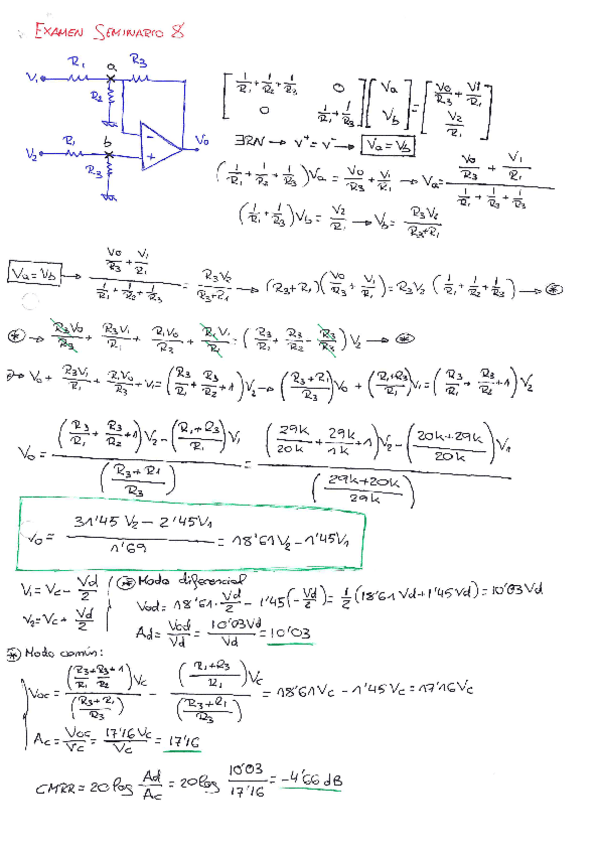 EXAMEN SEMINARIO 8
R₁ a R₃
V₁
R₂
R₁ b
V₂
R₃
- + V₀
[1/R₁+1/R₂+1/R₃ 0; 0 1/R₁+1/R₃] [Va; Vb] = [V₀/R₃+V₁/R₁; V₂/R₁]
∃RN → V⁺ = V⁻ → Va=Vb
(1/R₁ + 1/R₂ + 1/R₃)Va = V₀/R₃ + V₁/R₁ → Va = (V₀/R₃ + V₁/R₁)/(1/R₁+1/R₂+1/R₃)
(1/R₁+1/R₃)Vb = V₂/R₁ → Vb = R₃V₂/(R₃+R₁)
Va=Vb → (V₀/R₃ + V₁/R₁)/(1/R₁+1/R₂+1/R₃) = R₃V₂/(R₃+R₁) → (R₃+R₁)(V₀/R₃ + V₁/R₁) = R₃V₂ (1/R₁+1/R₂+1/R₃) → *
* → R₃V₀/R₃ + R₃V₁/R₁ + R₁V₀/R₃ + R₁V₁/R₁ = (R₃/R₁ + R₃/R₂ - R₃/R₃)V₂ → *
→ V₀ + R₃V₁/R₁ + R₁V₀/R₃ + V₁ = (R₃/R₁ + R₃/R₂ + 1)V₂ → ((R₃+R₁)/R₃)V₀ + ((R₁+R₃)/R₁)V₁ = (R₃/R₁ + R₃/R₂ + 1)V₂
V₀ = ((R₃/R₁ + R₃/R₂ + 1)V₂ - ((R₁+R₃)/R₁)V₁)/((R₃+R₁)/R₃) = ((29k/20k + 29k/1k + 1)V₂ - ((20k+29k)/20k)V₁)/((29k+20k)/29k)
V₀ = (31'45 V₂ - 2'45V₁)/1'69 = 18'61V₂ - 1'45V₁
V₁ = Vc - Vd/2
V₂ = Vc + Vd/2
* Modo diferencial
Vod = 18'61·Vd/2 - 1'45(-Vd/2) = 1/2(18'61Vd + 1'45Vd) = 10'03Vd
Ad = Vod/Vd = 10'03Vd/Vd = 10'03
* Modo común:
Voc = ((R₃/R₁+R₃/R₂+1)Vc)/((R₃+R₁)/R₃) - (((R₁+R₃)/R₁)Vc)/((R₃+R₁)/R₃) = 18'61Vc - 1'45Vc = 17'16Vc
Ac = Voc/Vc = 17'16Vc/Vc = 17'16
CMRR = 20log Ad/Ac = 20log 10'03/17'16 = -4'66 dB